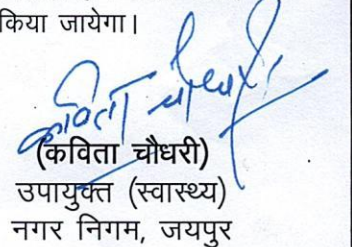 किया जायेगा।
कविता चौधरी
(कविता चौधरी)
उपायुक्त (स्वास्थ्य)
नगर निगम, जयपुर